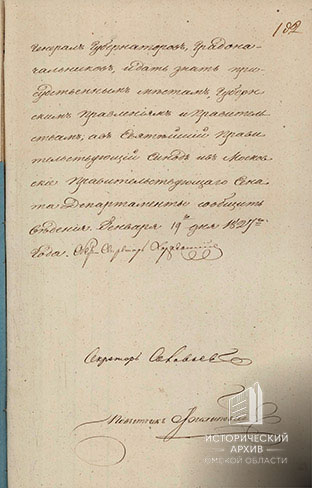 182
Генералъ Губернаторовъ, Градона-
чальниковъ, и дать знать при-
сутственнымъ мѣстамъ, Губерн-
скимъ Правленіямъ и Правитель-
ствамъ, а въ Святѣйшій Прави-
тельствующій Синодъ и въ Москов-
скіе Правительствующаго Сена-
та Департаменты сообщить
вѣдѣнія. Генваря 19го дня 1827го
Года.
Секретарь
ИСТОРИЧЕСКИЙ
АРХИВ
ОМСКОЙ ОБЛАСТИ